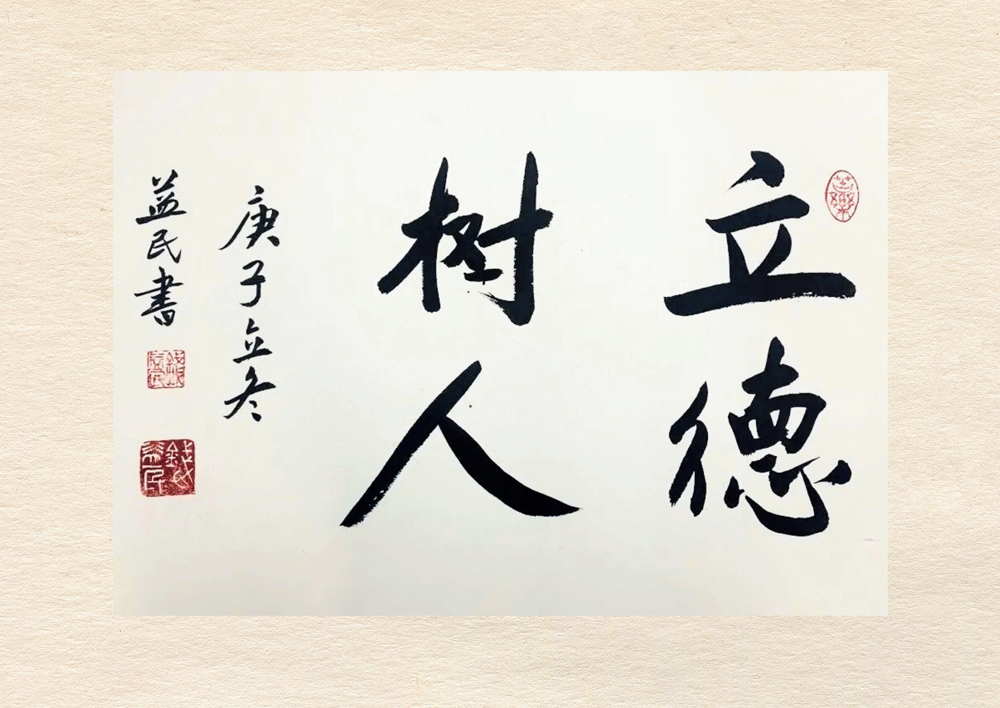 立德
树人
庚子立冬
益民书